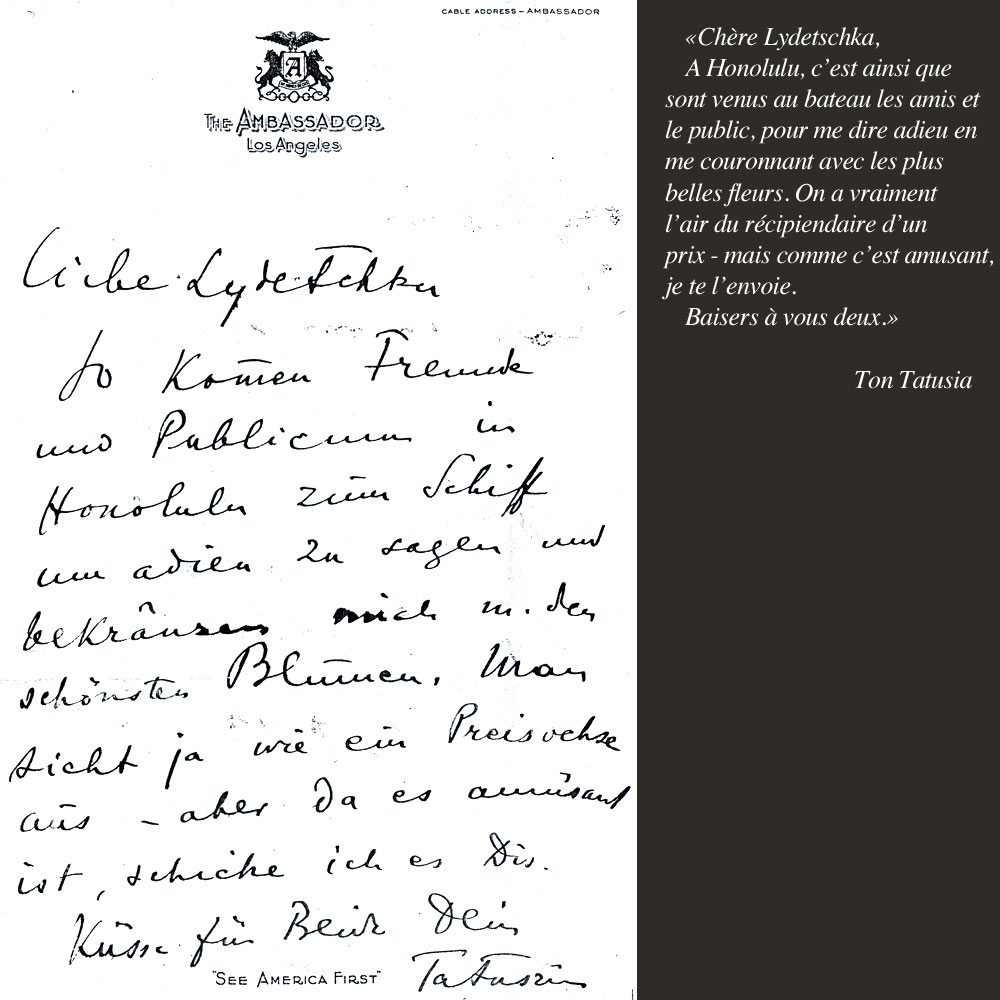 CABLE ADDRESS – AMBASSADOR
A
THE AMBASSADOR
Los Angeles
Liebe Lydetschka
So Kom̄en Freunde
und Publicum in
Honolulu zum Schiff
um adieu zu sagen und
bekränzen mich m. den
schönsten Blumen. Man
sieht ja wie ein Preisochse
aus - aber da es amüsant
ist, schicke ich es Dir.
Küsse für Beide Dein
Tatuszia
"SEE AMERICA FIRST"
«Chère Lydetschka,
A Honolulu, c’est ainsi que
sont venus au bateau les amis et
le public, pour me dire adieu en
me couronnant avec les plus
belles fleurs. On a vraiment
l’air du récipiendaire d’un
prix - mais comme c’est amusant,
je te l’envoie.
Baisers à vous deux.»
Ton Tatusia